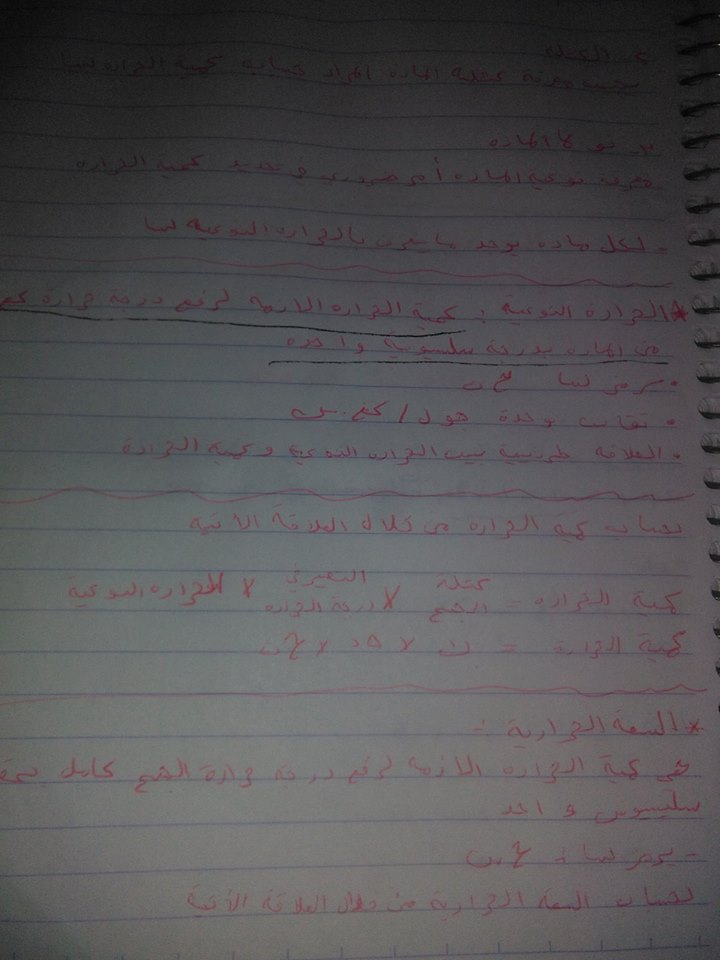 ٢- الكتله
يجب معرفة كتلة الماده المراد حساب كمية الحراره لها
٣- نوع الماده
معرفة نوعية الماده أمر ضروري في تحديد كمية الحراره
- لكل ماده يوجد ما يعرف بالحراره النوعيه لها
* الحرارة النوعية : كمية الحراره الازمه لرفع درجة حرارة كجم
من الماده بدرجة سلسيوسية واحده
• يرمز لها حن
• تقاس بوحدة جول / كجم.س
• العلاقة طردية بين الحراره النوعيه وكمية الحرارة
لحساب كمية الحراره من خلال العلاقة الأتيه
كمية الحراره = كتلة الجسم × التغير في درجة الحراره × الحراره النوعيه
كمية الحرارة = ك × Δد × حن
* السعة الحرارية :-
هي كمية الحراره الازمه لرفع درجة حرارة الجسم كامل
سلسيوس واحد
- يرمز لها :
لحساب السعه الحرارية من خلال العلاقة الأتية